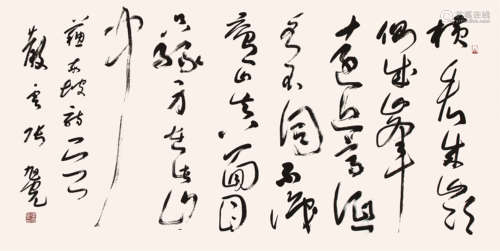 横看成岭
侧成峰
远近高低
各不同不识
庐山真面目
只缘身在此山
中
苏东坡诗一首
张旭光